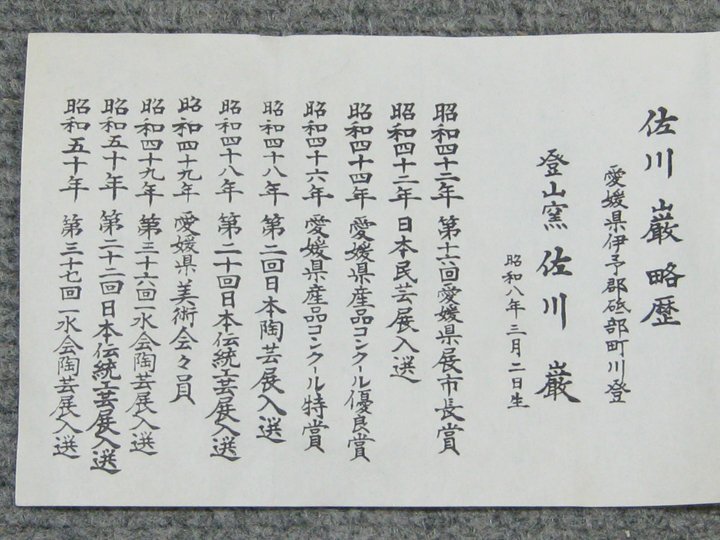 佐川巌略歴
愛媛県伊予郡砥部町川登
登山窯 佐川巌
昭和八年三月二日生
昭和四十二年 第十六回愛媛県展市長賞
昭和四十二年 日本民芸展入選
昭和四十四年 愛媛県産品コンクール優良賞
昭和四十六年 愛媛県産品コンクール特賞
昭和四十八年 第二回日本陶芸展入選
昭和四十八年 第二十回日本伝統工芸展入選
昭和四十九年 愛媛県美術会々員
昭和四十九年 第三十六回一水会陶芸展入選
昭和五十年 第二十二回日本伝統工芸展入選
昭和五十年 第三十七回一水会陶芸展入選